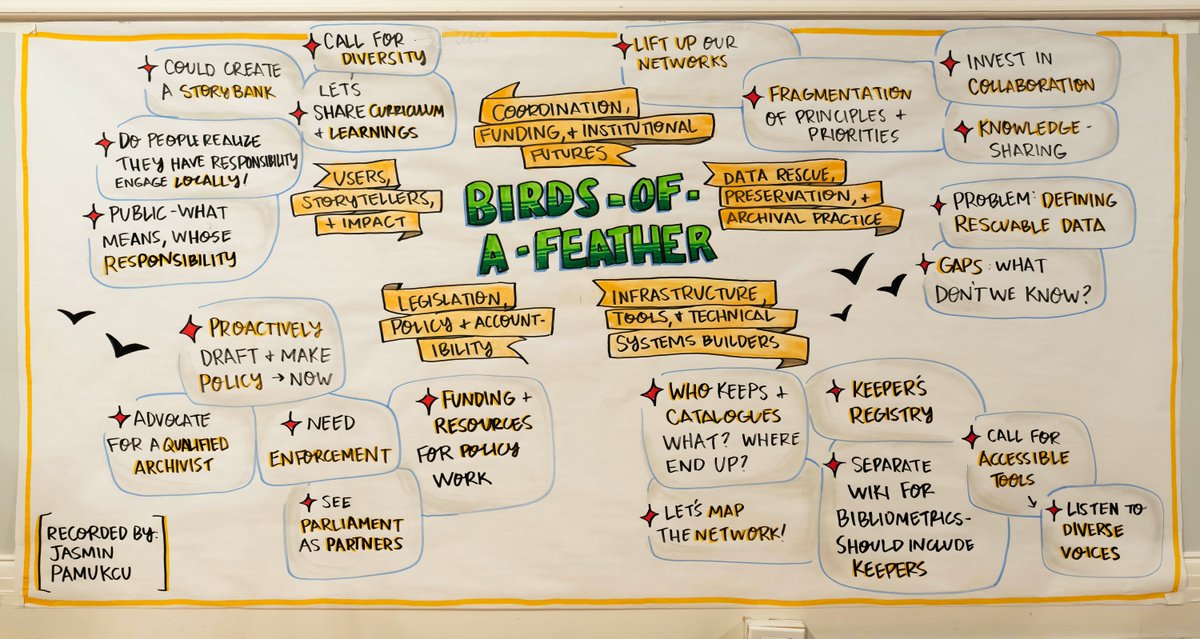 BIRDS-OF-
A-FEATHER
COORDINATION,
FUNDING, + INSTITUTIONAL
FUTURES
LIFT UP OUR
NETWORKS
FRAGMENTATION
OF PRINCIPLES +
PRIORITIES
INVEST IN
COLLABORATION
KNOWLEDGE-
SHARING
USERS,
STORYTELLERS,
+ IMPACT
CALL FOR
DIVERSITY
LET'S
SHARE CURRICULUM
+ LEARNINGS
COULD CREATE
A STORYBANK
DO PEOPLE REALIZE
THEY HAVE RESPONSIBILITY
ENGAGE LOCALLY!
PUBLIC-WHAT
MEANS, WHOSE
RESPONSIBILITY
DATA RESCUE,
PRESERVATION, +
ARCHIVAL PRACTICE
PROBLEM: DEFINING
RESCUABLE DATA
GAPS: WHAT
DON'T WE KNOW?
LEGISLATION,
POLICY + ACCOUNT-
IBILITY
PROACTIVELY
DRAFT + MAKE
POLICY → NOW
ADVOCATE
FOR A QUALIFIED
ARCHIVIST
NEED
ENFORCEMENT
FUNDING +
RESOURCES
FOR POLICY
WORK
SEE
PARLIAMENT
AS PARTNERS
INFRASTRUCTURE,
TOOLS, + TECHNICAL
SYSTEMS BUILDERS
WHO KEEPS +
CATALOGUES
WHAT? WHERE
END UP?
KEEPER'S
REGISTRY
LET'S MAP
THE NETWORK!
SEPARATE
WIKI FOR
BIBLIOMETRICS-
SHOULD INCLUDE
KEEPERS
CALL FOR
ACCESSIBLE
TOOLS
LISTEN TO
DIVERSE
VOICES
RECORDED BY:
JASMIN
PAMUKCU